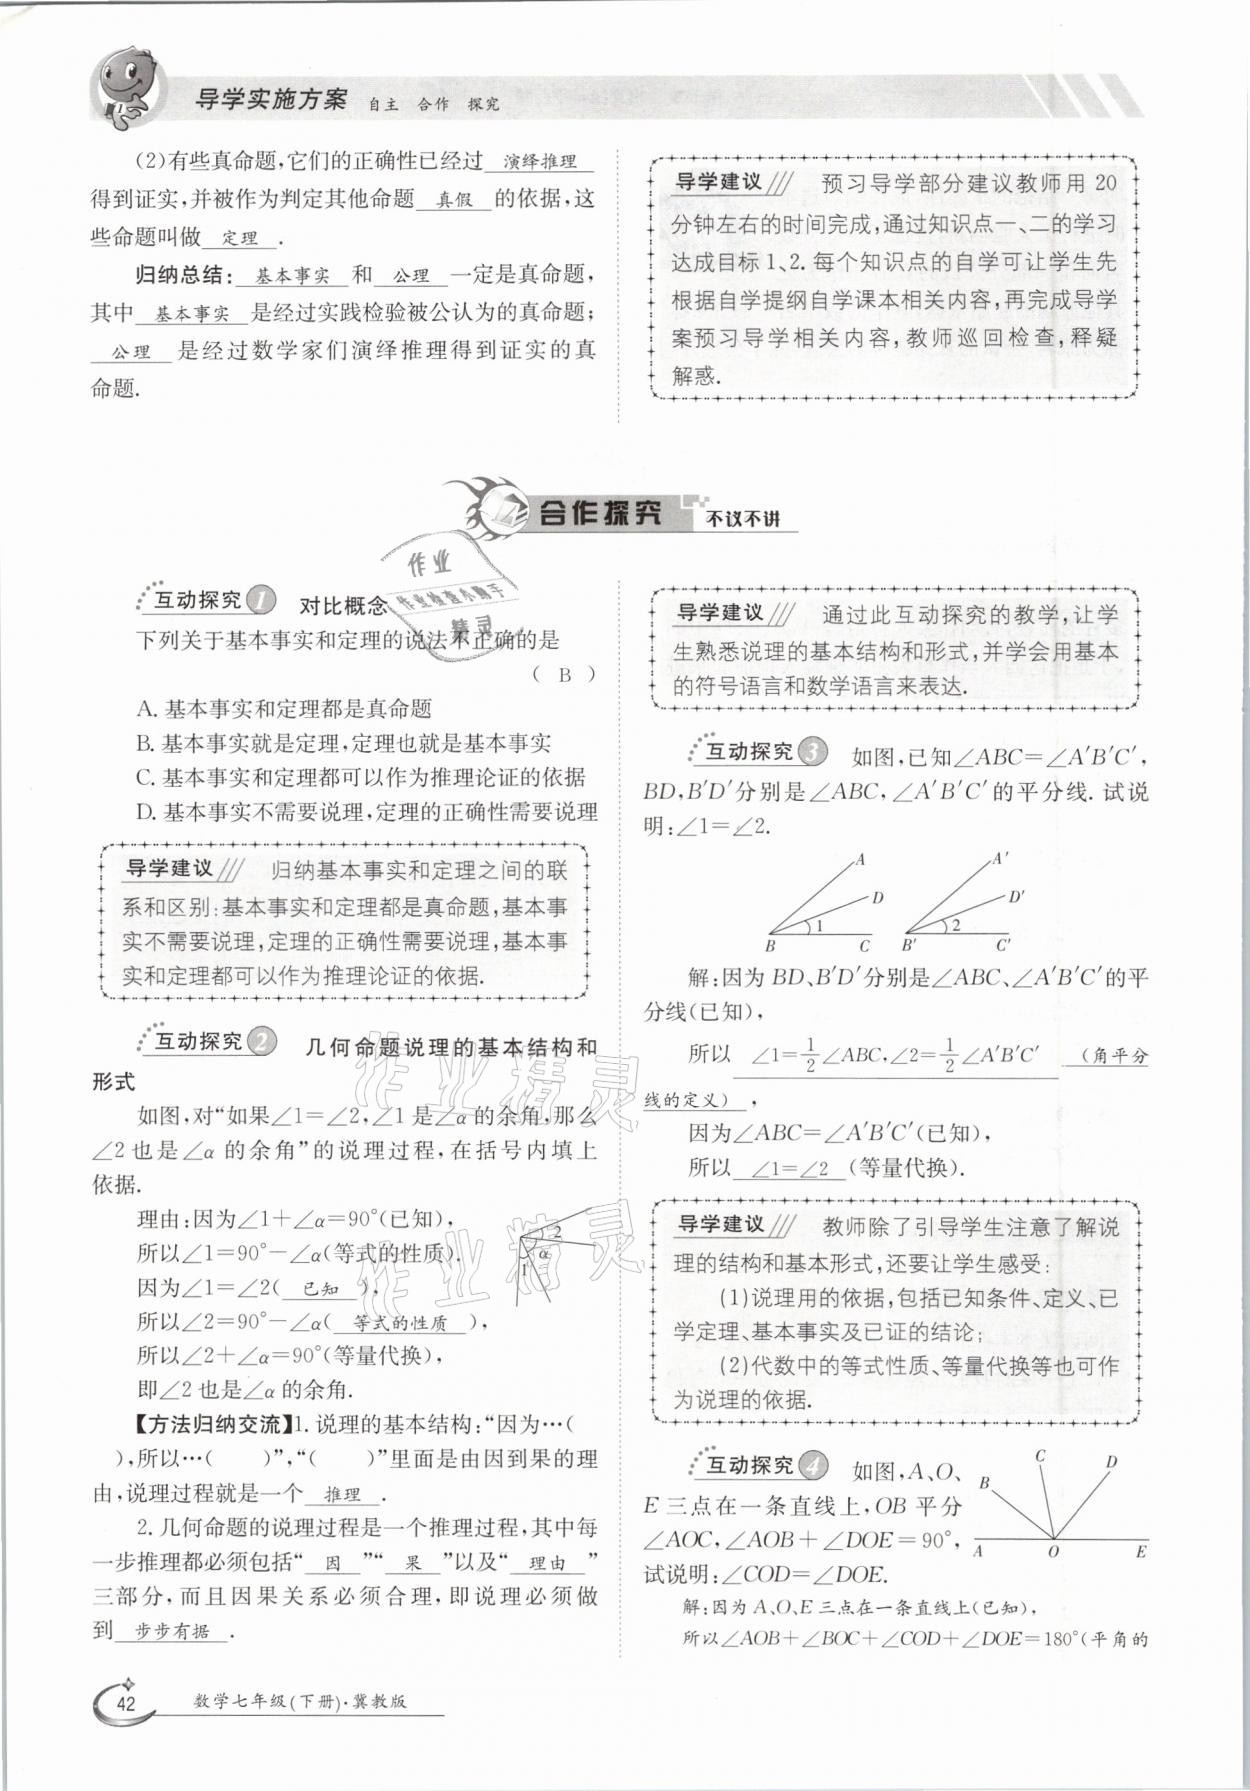 导学实施方案 自主 合作 探究
(2)有些真命题,它们的正确性已经过 演绎推理
得到证实,并被作为判定其他命题 真假 的依据,这
些命题叫做 定理 .
归纳总结: 基本事实 和 公理 一定是真命题,
其中 基本事实 是经过实践检验被公认为的真命题;
公理 是经过数学家们演绎推理得到证实的真
命题.
导学建议 预习导学部分建议教师用 20
分钟左右的时间完成,通过知识点一、二的学习
达成目标1、2. 每个知识点的自学可让学生先
根据自学提纲自学课本相关内容,再完成导学
案预习导学相关内容,教师巡回检查,释疑
解惑.
合作探究 不议不讲
互动探究 1 对比概念
下列关于基本事实和定理的说法不正确的是
( B )
A. 基本事实和定理都是真命题
B. 基本事实就是定理,定理也就是基本事实
C. 基本事实和定理都可以作为推理论证的依据
D. 基本事实不需要说理,定理的正确性需要说理
导学建议 归纳基本事实和定理之间的联
系和区别:基本事实和定理都是真命题,基本事
实不需要说理,定理的正确性需要说理,基本事
实和定理都可以作为推理论证的依据.
互动探究 2 几何命题说理的基本结构和
形式
如图,对“如果∠1=∠2,∠1是∠α的余角,那么
∠2也是∠α的余角”的说理过程,在括号内填上
依据.
理由:因为∠1+∠α=90°(已知),
所以∠1=90°-∠α(等式的性质).
因为∠1=∠2( 已知 ),
所以∠2=90°-∠α( 等式的性质 ),
所以∠2+∠α=90°(等量代换),
即∠2也是∠α的余角.
2
α
1
【方法归纳交流】1. 说理的基本结构:“因为…(
),所以…( )”,“( )”里面是由因到果的理
由,说理过程就是一个 推理 .
2. 几何命题的说理过程是一个推理过程,其中每
一步推理都必须包括“ 因 ”“ 果 ”以及“ 理由 ”
三部分,而且因果关系必须合理,即说理必须做
到 步步有据 .
导学建议 通过此互动探究的教学,让学
生熟悉说理的基本结构和形式,并学会用基本
的符号语言和数学语言来表达.
互动探究 3 如图,已知∠ABC=∠A′B′C′,
BD,B′D′分别是∠ABC,∠A′B′C′的平分线. 试说
明:∠1=∠2.
A A′
D D′
1 2
B C B′ C′
解:因为BD、B′D′分别是∠ABC、∠A′B′C′的平
分线(已知),
所以 ∠1=1/2∠ABC,∠2=1/2∠A′B′C′ (角平分
线的定义) ,
因为∠ABC=∠A′B′C′(已知),
所以 ∠1=∠2 (等量代换).
导学建议 教师除了引导学生注意了解说
理的结构和基本形式,还要让学生感受:
(1)说理用的依据,包括已知条件、定义、已
学定理、基本事实及已证的结论;
(2)代数中的等式性质、等量代换等也可作
为说理的依据.
互动探究 4 如图,A、O、
E三点在一条直线上,OB平分
∠AOC,∠AOB+∠DOE=90°,
试说明:∠COD=∠DOE.
C D
B
A O E
解:因为A、O、E三点在一条直线上(已知),
所以∠AOB+∠BOC+∠COD+∠DOE=180°(平角的
42 数学七年级(下册)·冀教版
作业
作业检查小助手
精灵
作业精灵
作业精灵